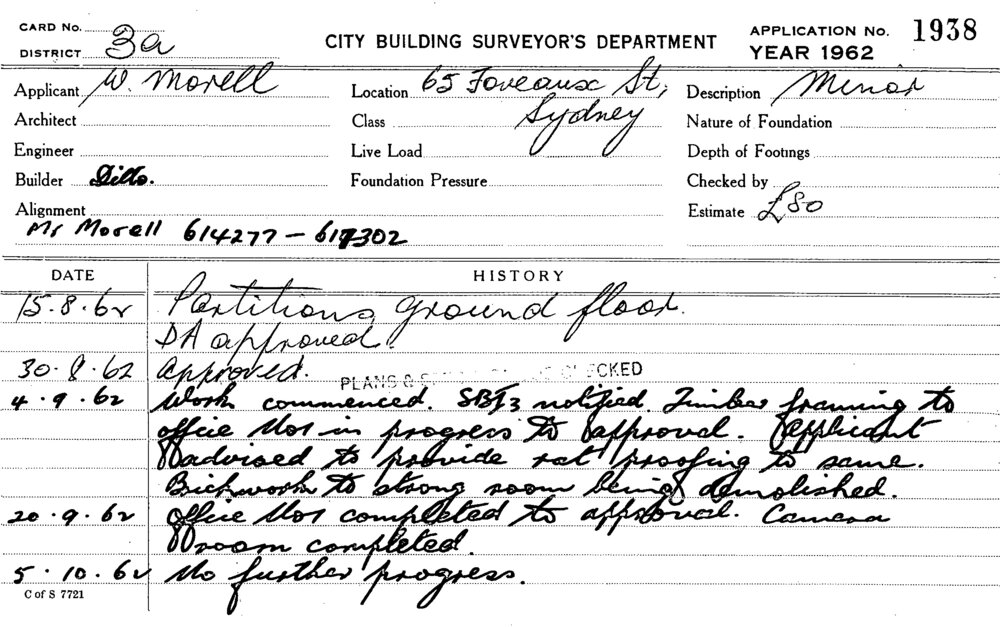 CARD No.
DISTRICT 3a
CITY BUILDING SURVEYOR'S DEPARTMENT
APPLICATION No. 1938
YEAR 1962
Applicant W. Morell
Location 65 Foveaux St,
Description Minor
Architect
Class Sydney
Nature of Foundation
Engineer
Live Load
Depth of Footings
Builder Ditto.
Foundation Pressure
Checked by
Alignment
Estimate £80
Mr Morell 614277 - 617302
DATE
HISTORY
15.8.62 Partitions ground floor.
DA approved.
30.8.62 Approved.
PLANS & CHECKED
4.9.62 Work commenced. SBI3 notified. Timber framing to
office No1 in progress to approval. Applicant
advised to provide rat proofing to same.
Brickwork to strong room being demolished.
20.9.62 Office No1 completed to approval. Camera
room completed.
5.10.62 No further progress.
C of S 7721